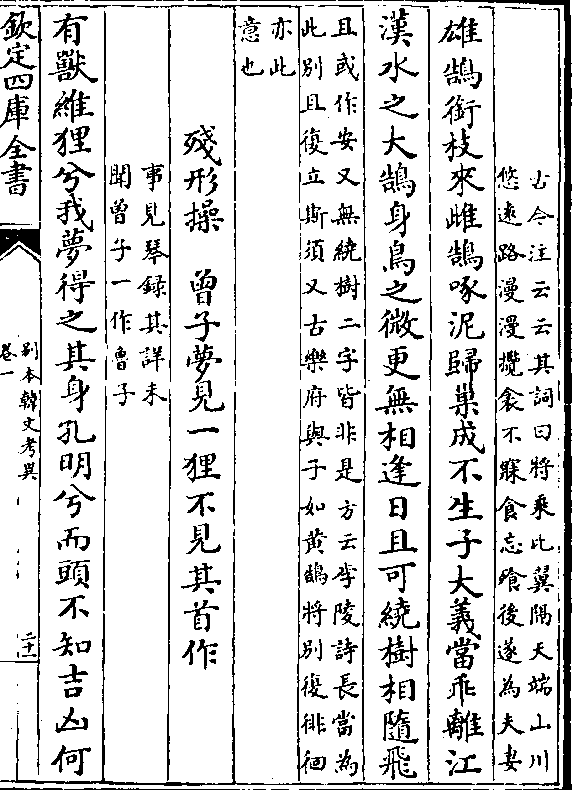 古今注云云其詞曰將乘比翼隔天端山川
悠遠路漫漫攬衾不寐食忘飱後遂為夫妻
雄鵠銜枝來雌鵠啄泥歸巢成不生子大義當乖離江
漢水之大鵠身鳥之微更無相逢日且可繞樹相隨飛
且或作安又無繞樹二字皆非是方云李陵詩長當為
此别且復立斯須又古樂府與子如黄鵠將别復徘徊
亦此
意也
殘形操　曾子夢見一狸不見其首作
事見琴録其詳未
聞曾子一作魯子
有獸維狸兮我夢得之其身孔明兮而頭不知吉凶何
欽定四庫全書
别本韓文考異
卷一
二十一